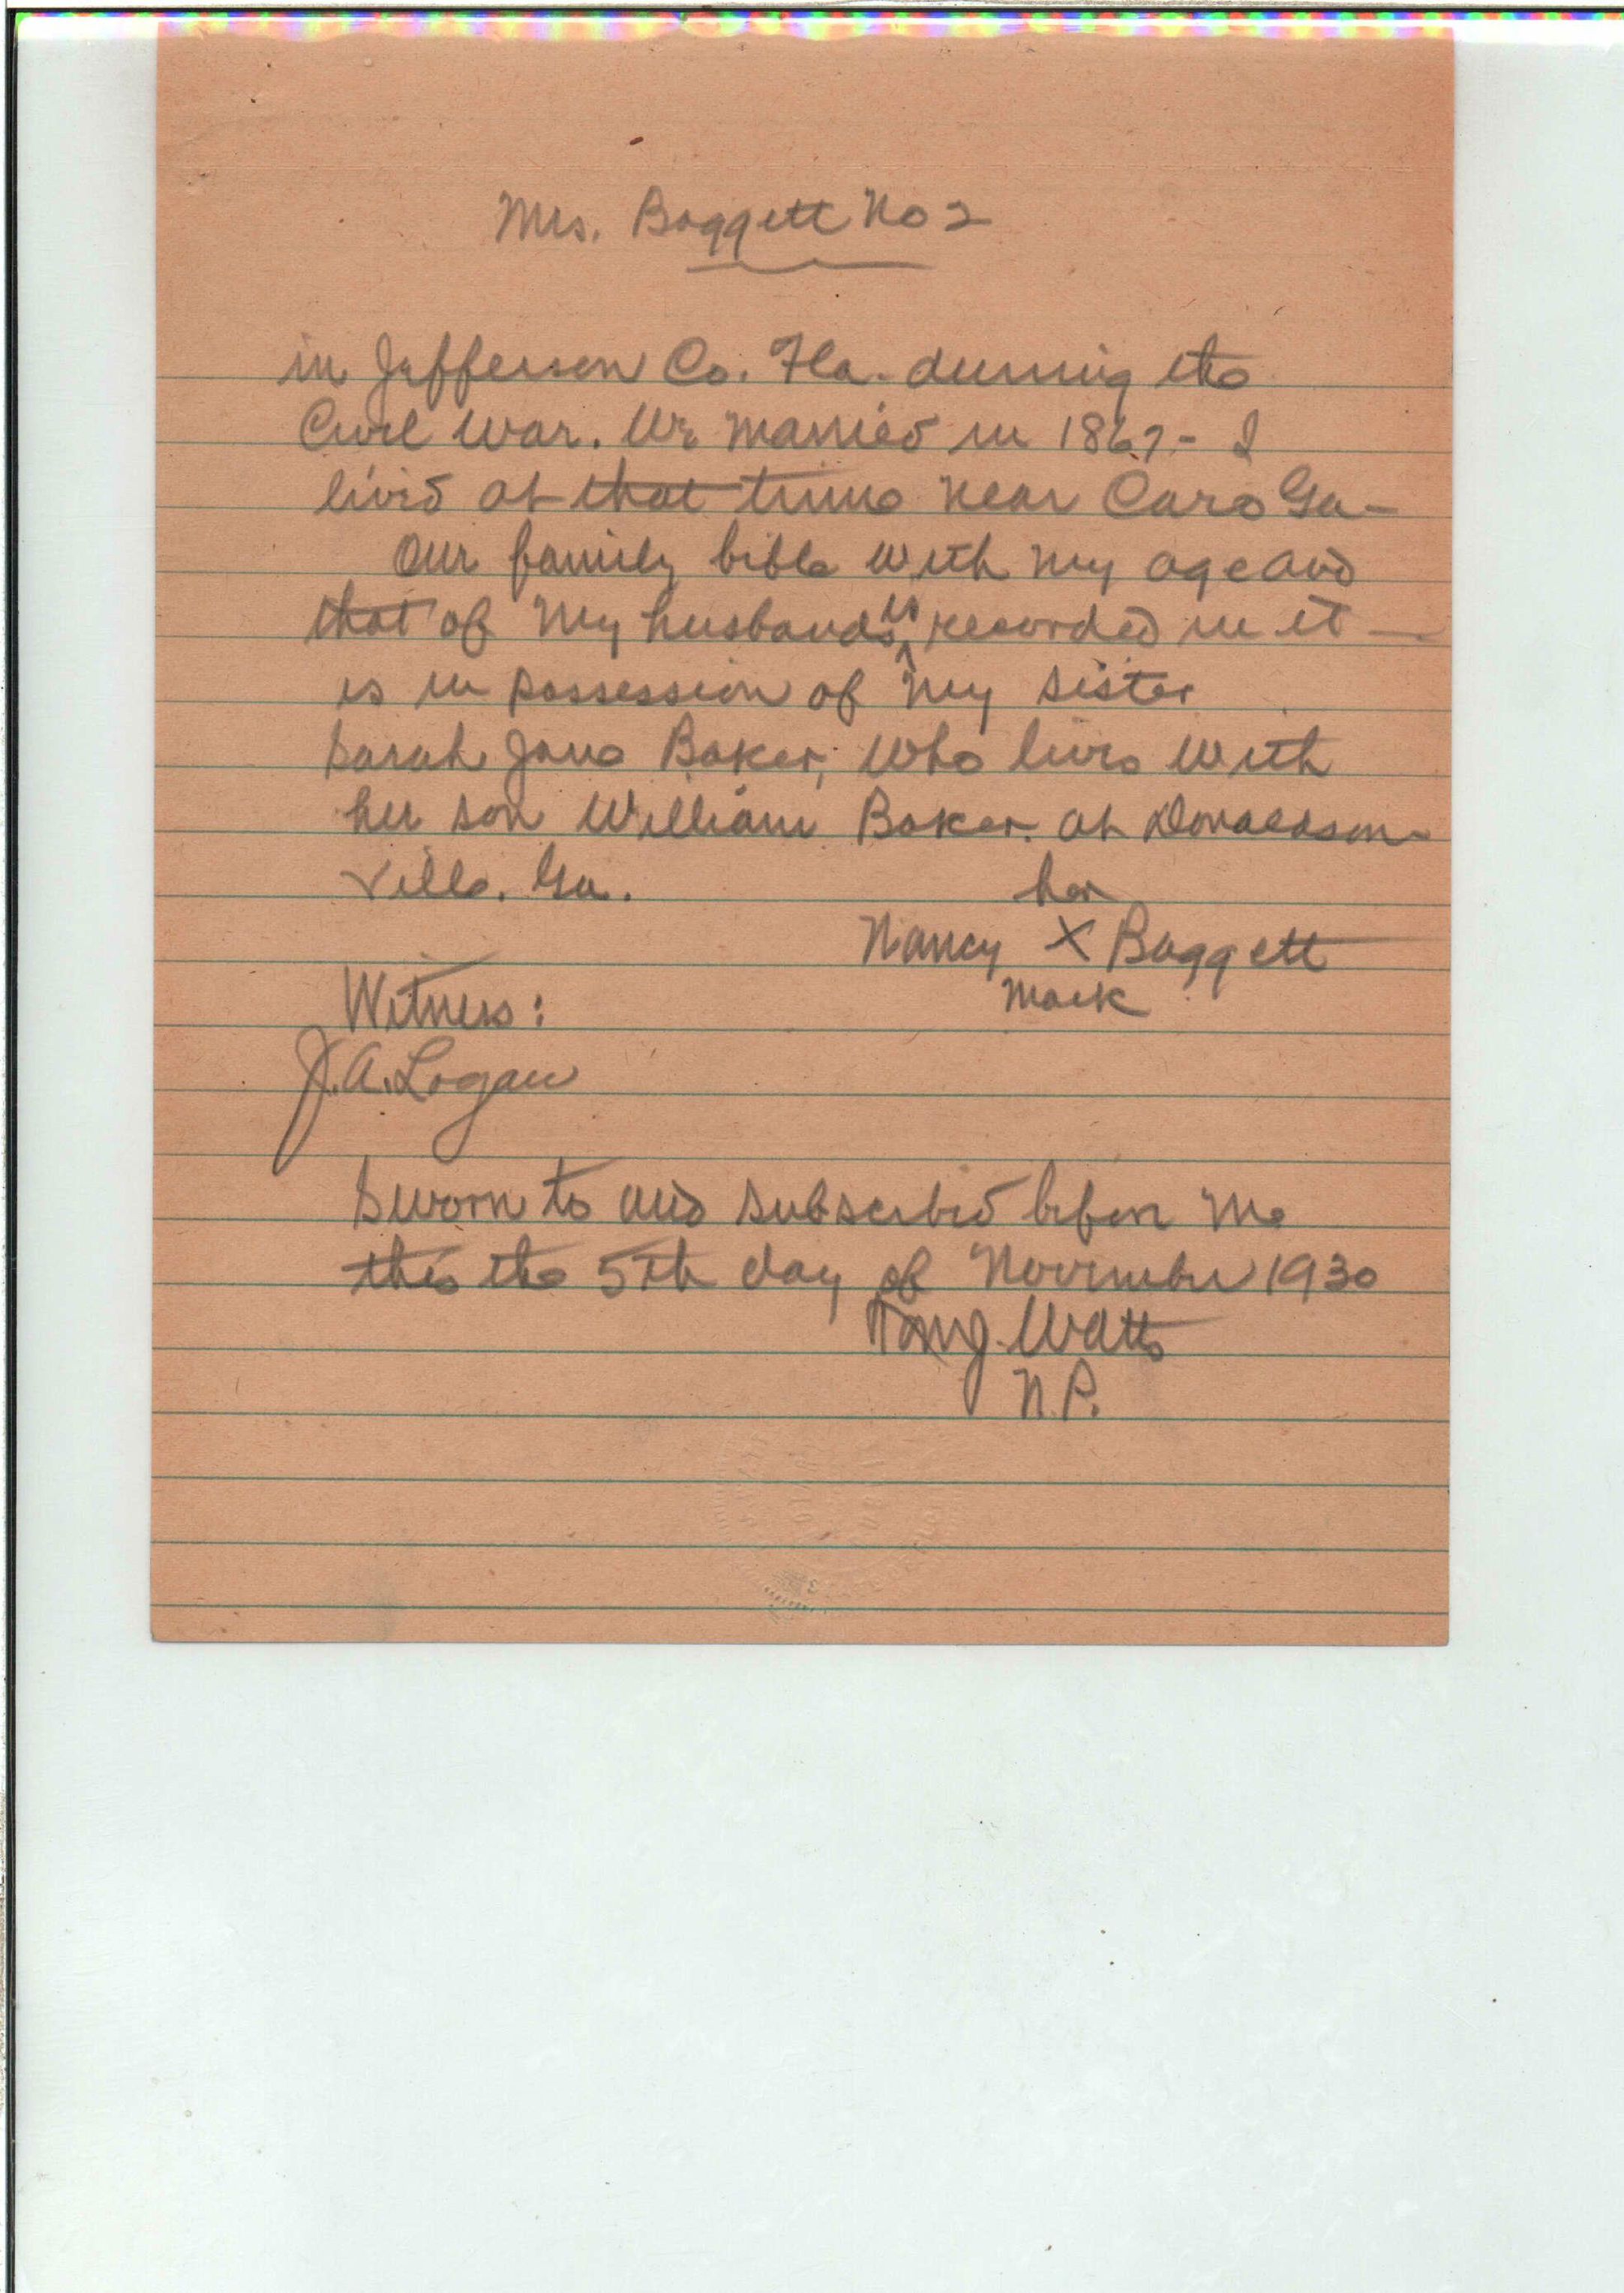 Mrs. Baggett No 2
in Jefferson Co. Fla. during the
Civil War. We married in 1867 - I
lived at that time near Caro Ga -
Our family bible with my age and
that of my husbands, is recorded in it —
is in possession of my sister
Sarah Jane Baker, who lives with
her son William Baker at Donaldson-
ville. Ga.
her
Nancy X Baggett
mark
Witness:
J. A. Logan
Sworn to and subscribed before me
this the 5th day of November 1930
Watts
N. P.